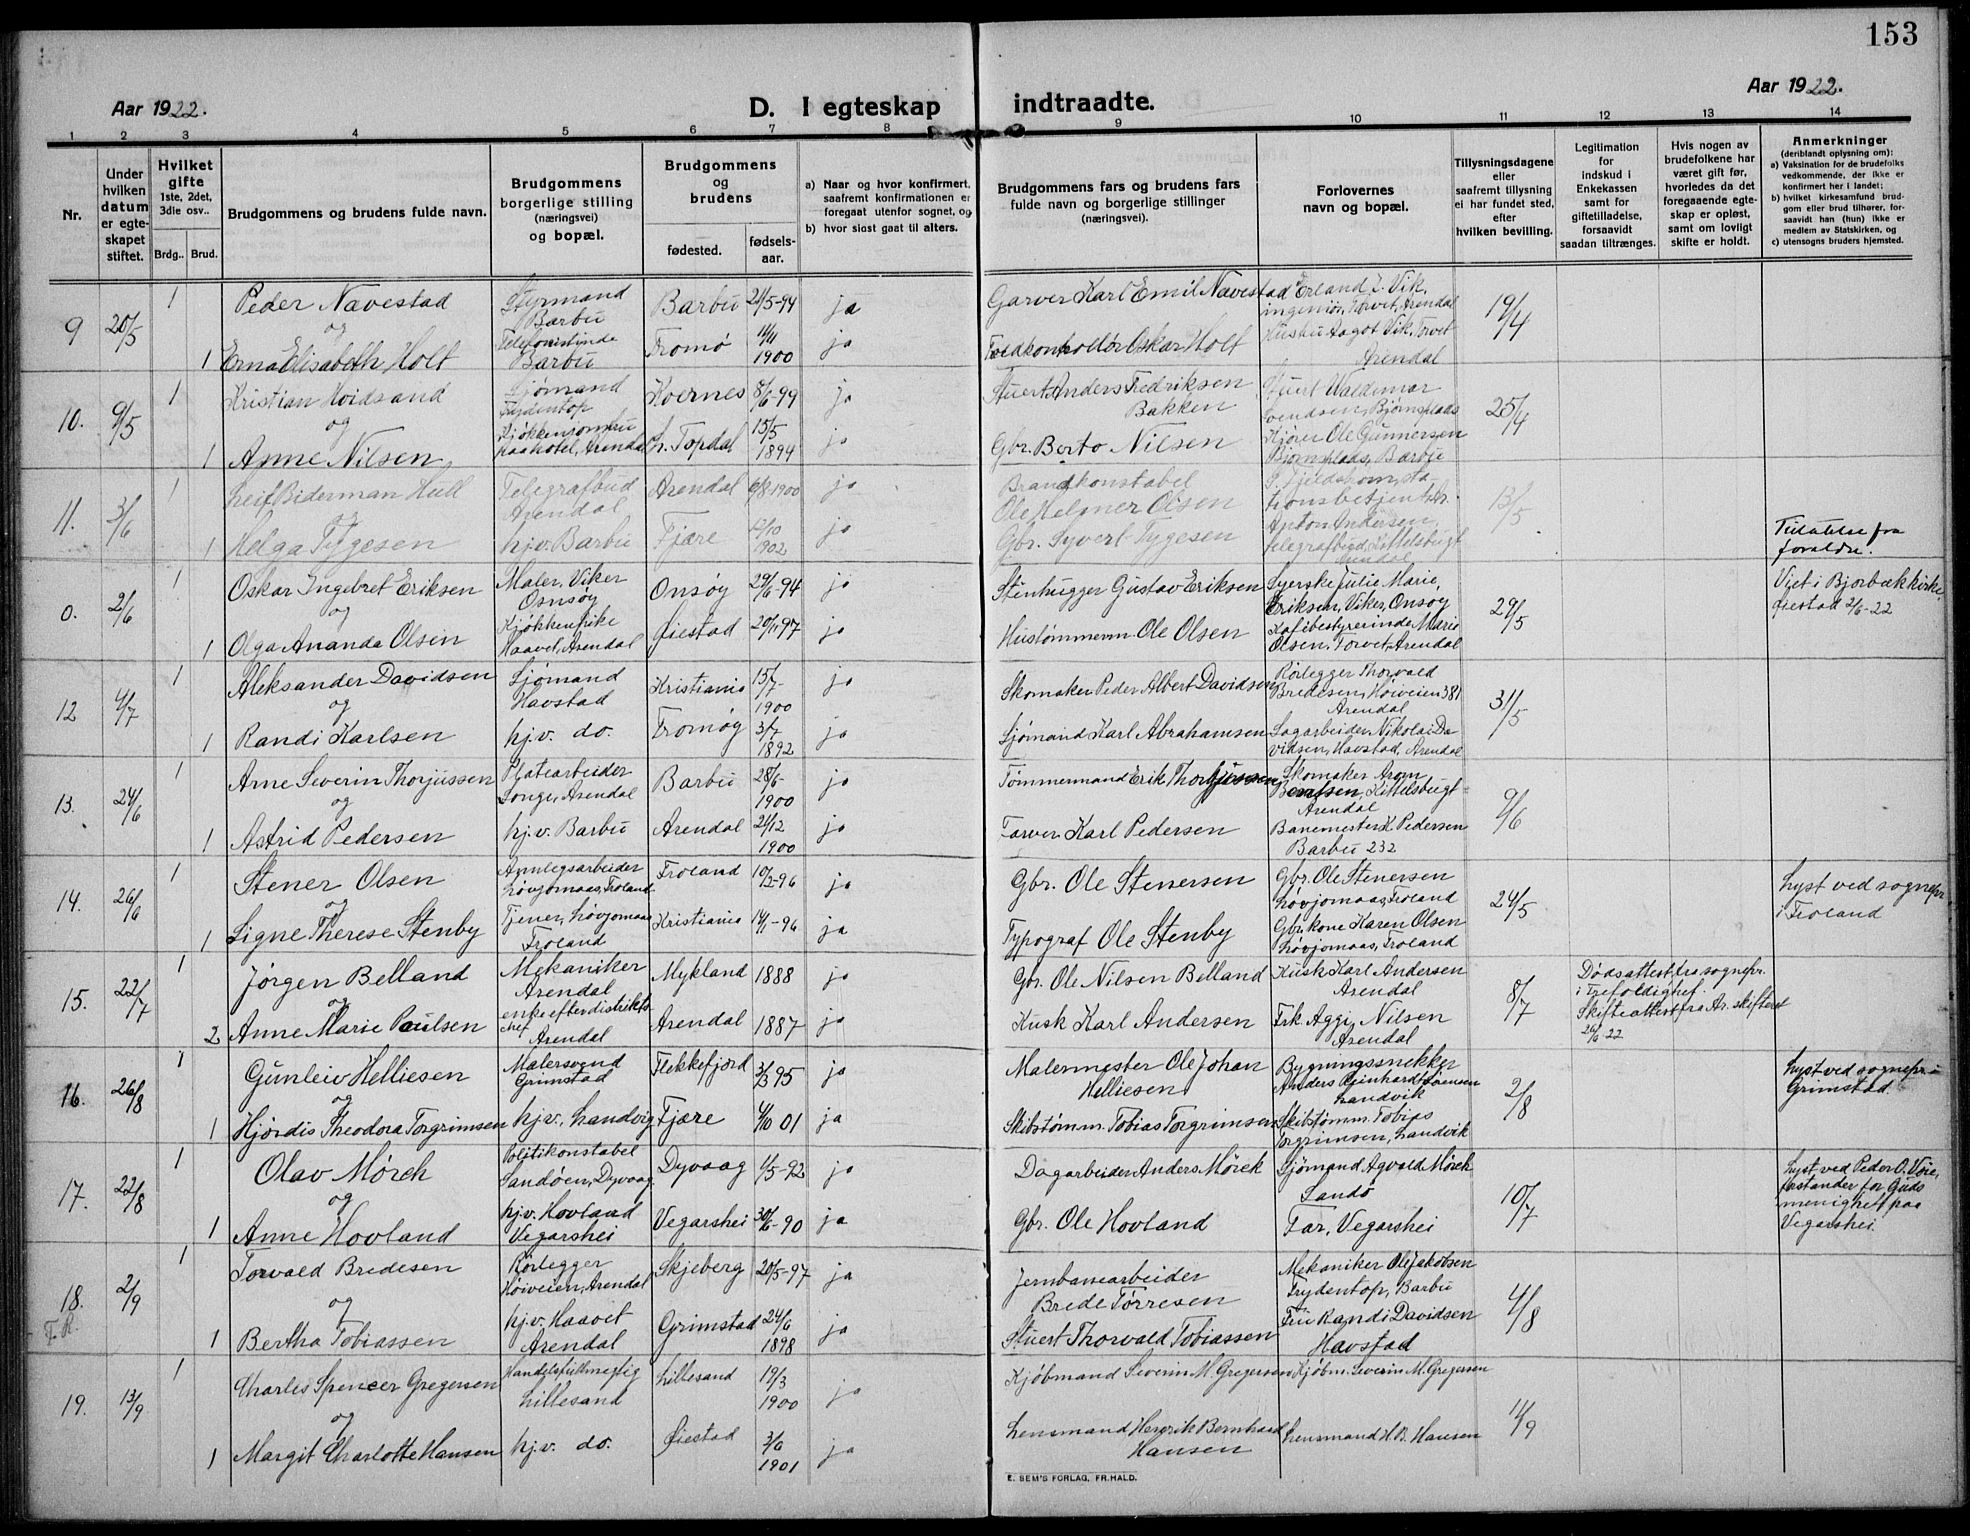 153
Aar 1922.
D. I egteskap indtraadte.
Aar 1922.
1 2 3 4 5 6 7 8 9 10 11 12 13 14
Nr.
Under hvilken datum er egte- skapet stiftet.
Hvilket gifte 1ste, 2det, 3die osv..
Brdg.. Brud.
Brudgommens og brudens fulde navn.
Brudgommens borgerlige stilling (næringsvei) og bopæl.
Brudgommens og brudens
fødested. fødsels- aar.
a) Naar og hvor konfirmert, saafremt konfirmationen er foregaat utenfor sognet, og
b) hvor sidst gaat til alters.
Brudgommens fars og brudens fars fulde navn og borgerlige stillinger (næringsvei).
Forlovernes navn og bopæl.
Tillysningsdagene eller saafremt tillysning ei har fundet sted, efter hvilken bevilling.
Legitimation for indskud i Enkekassen samt for giftetilladelse, forsaavidt saadan tiltrænges.
Hvis nogen av brudefolkene har været gift før, hvorledes da det foregaaende egte- skap er opløst, samt om lovligt skifte er holdt.
Anmerkninger (deriblandt oplysning om):
a) Vaksination for de brudefolks vedkommende, der ikke er konfirmert her i landet;
b) hvilket kirkesamfund brud- gom eller brud tilhører, for- saavidt han (hun) ikke er medlem av Statskirken, og
c) utensogns bruders hjemsted.
9 20/5 1 Peder Navestad Styrmand Barbu Barbu 21/5-94 ja Garver Karl Emil Navestad Erland J. Vik, ingeniør, Torvet, Arendal 19/4
og
1 Erna Elisabeth Holt Telefonistinde Barbu Tromø 1900 ja Oskar Holt Hustru Aagot Vik, Torvet Arendal
10. 9/5 1 Kristian Hoidsand Sjømand Frydentop 8/6-99 ja Stuert Anders Fredriksen Bakken Stuert Valdemar Svendsen, Bjørnsplads 25/4
og
1 Anne Nilsen, Kjøkkenjomfru paa hotel, Arendal Topdal 15/5 1894 ja Gbr. Nilsen Kjører Ole Gunnersen Bjørnsplads, Barbu
11. 3/6 1 Leif Biderman Hull Telegrafbud Arendal Arendal 6/8-1900 ja Brandkonstabel Ole Helmer Olsen stationsbetjent 13/5
og
1 Helga Tygesen hj.v. Barbu Fjære 1902 ja Gbr. Syvert Tygesen Anton Andersen, telegrafbud, Kittelsbugt Arendal
Tilladelse fra foreldre.
0. 2/6 1 Oskar Ingebret Eriksen Maler, Viker Onsøy Onsøy 29/6-94 ja Stenhugger Gustav Eriksen Syerske Julie Marie, Eriksen, Viker, Onsøy 29/5
Viet i Bjorbæk kirke, Øiestad 2/6-22
og
1 Olga Amanda Olsen Kjøkkenpike Haavet, Arendal Øiestad 20/1 97 ja Hustømmerm. Ole Olsen Kafebestyrerinde Marie Olsen. Torvet, Arendal
12 4/7 1 Aleksander Davidsen Sjømand Havstad Kristiania 15/7- 1900 ja Skomaker Peder Albert Davidsen Rørlegger Thorvald Bredesen, Høiveien 381 Arendal 31/5
og
1 Randi Karlsen hj.v. do. Tromøy 3/7 1892 ja Sjømand Karl Abrahamsen Sagarbeider Nikolai Davidsen, Havstad, Arendal
13. 24/6 1 Arne Severin Thorjussen Platearbeider Songe, Arendal Barbu 28/6- 1900 ja Tømmermand Erik Thorjussen Skomaker Bentsen, Kittelsbugt- Arendal 9/6
og
1 Astrid Pedersen hj.v. Barbu Arendal 21/12 1900 ja Farver Karl Pedersen Banemester K Pedersen Barbu 232
14. 26/6 1 Stener Olsen Anlegsarbeider Løvjomaas, Froland Froland 10/2-96 ja Gbr. Ole Stenersen Gbr. Ole Stenersen Løvjomaas, Froland 24/5
Lyst ved sognepr. i Froland
og
1 Signe Therese Stenby Tjener, Løvjomaas Froland Kristiania 14/1-96 ja Typograf Ole Stenby Gbr. kone Karen Olsen Løvjomaas, Froland
15. 22/7 1 Jørgen Belland Mekaniker Arendal Mykland 1888 ja Gbr. Ole Nilsen Belland Kusk Karl Andersen Arendal 8/7
Dødsattest fra sognepr. i Trefoldighet. Skifteattest fra Ar. skifteret 26/6 22
og
2 Anne Marie Paulsen enke efter distriktschef Arendal Arendal 1887 ja Kusk Karl Andersen Frk. Aggi Nilsen Arendal
16. 26/8 1 Gunleiv Helliesen Malersvend Grimstad Flekkefjord 3/3 95 ja Malermester Ole Johan Helliesen Bygningssnekker Anders Reinhardt Sørensen Landvik 2/8
Lyst ved sognepr. i Grimstad.
og
1 Hjørdis Theodora Torgrimsen hj.v., Landvig Fjære 4/10 01 ja Skibstømm. Tobias Torgrimsen Skibstømm. Tobias Torgrimsen, Landvik
17. 22/8 1 Olav Mørch Politikonstabel Sandøen, Dyvaag Dyvaag 1/5-92 ja Dagarbeider Anders Mørck Sjømand Agvald Mørck Sandø 10/7
Lyst ved Peder O. Voie, forstander for Guds menighet paa Vegarshei.
og
1 Anne Hovland hj.v. Hovland Vegarshei Vegarshei 30/6-90 ja Gbr. Ole Hovland Far, Vegarshei
18. 2/9 1 Torvald Bredesen Rørlegger Høiveien, Arendal Skjeberg 20/5-97 ja Jernbanearbeider Brede Tørresen Mekaniker Ole Jakobsen Frydentop, Barbu 4/8
F.R. og
1 Bertha Tobiassen hj.v. Haavet Arendal Grimstad 24/6 1898 ja Stuert Thorvald Tobiassen Fru Randi Davidsen Havstad
19. 13/9 1 Charles Spencer Gregersen Handelsfuldmegtig Lillesand Lillesand 19/3 1900 ja Kjøbmand Severin M. Gregersen Kjøbm. Severin M. Gregersen 11/9
og
1 Margit Charlotte Hansen hj.v. do. Øiestad 3/6 1901 ja Lensmand Henrik Bernhard Hansen Lensmand H.B. Hansen
E. SEM'S FORLAG, FR.HALD.